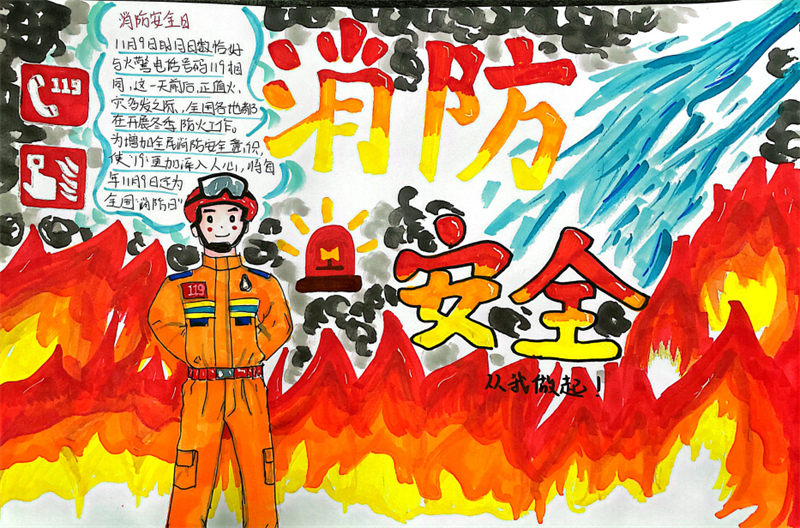 消防安全日
11月9日的月日数恰好
与火警电话号码119相
同，这一天前后，正值火
灾多发之际，全国各地都
在开展冬季防火工作。
为增加全民消防安全意识，
使更加深入人心，将每
年11月9日定为
全国“消防日”
119
消防
安全
从我做起！
119